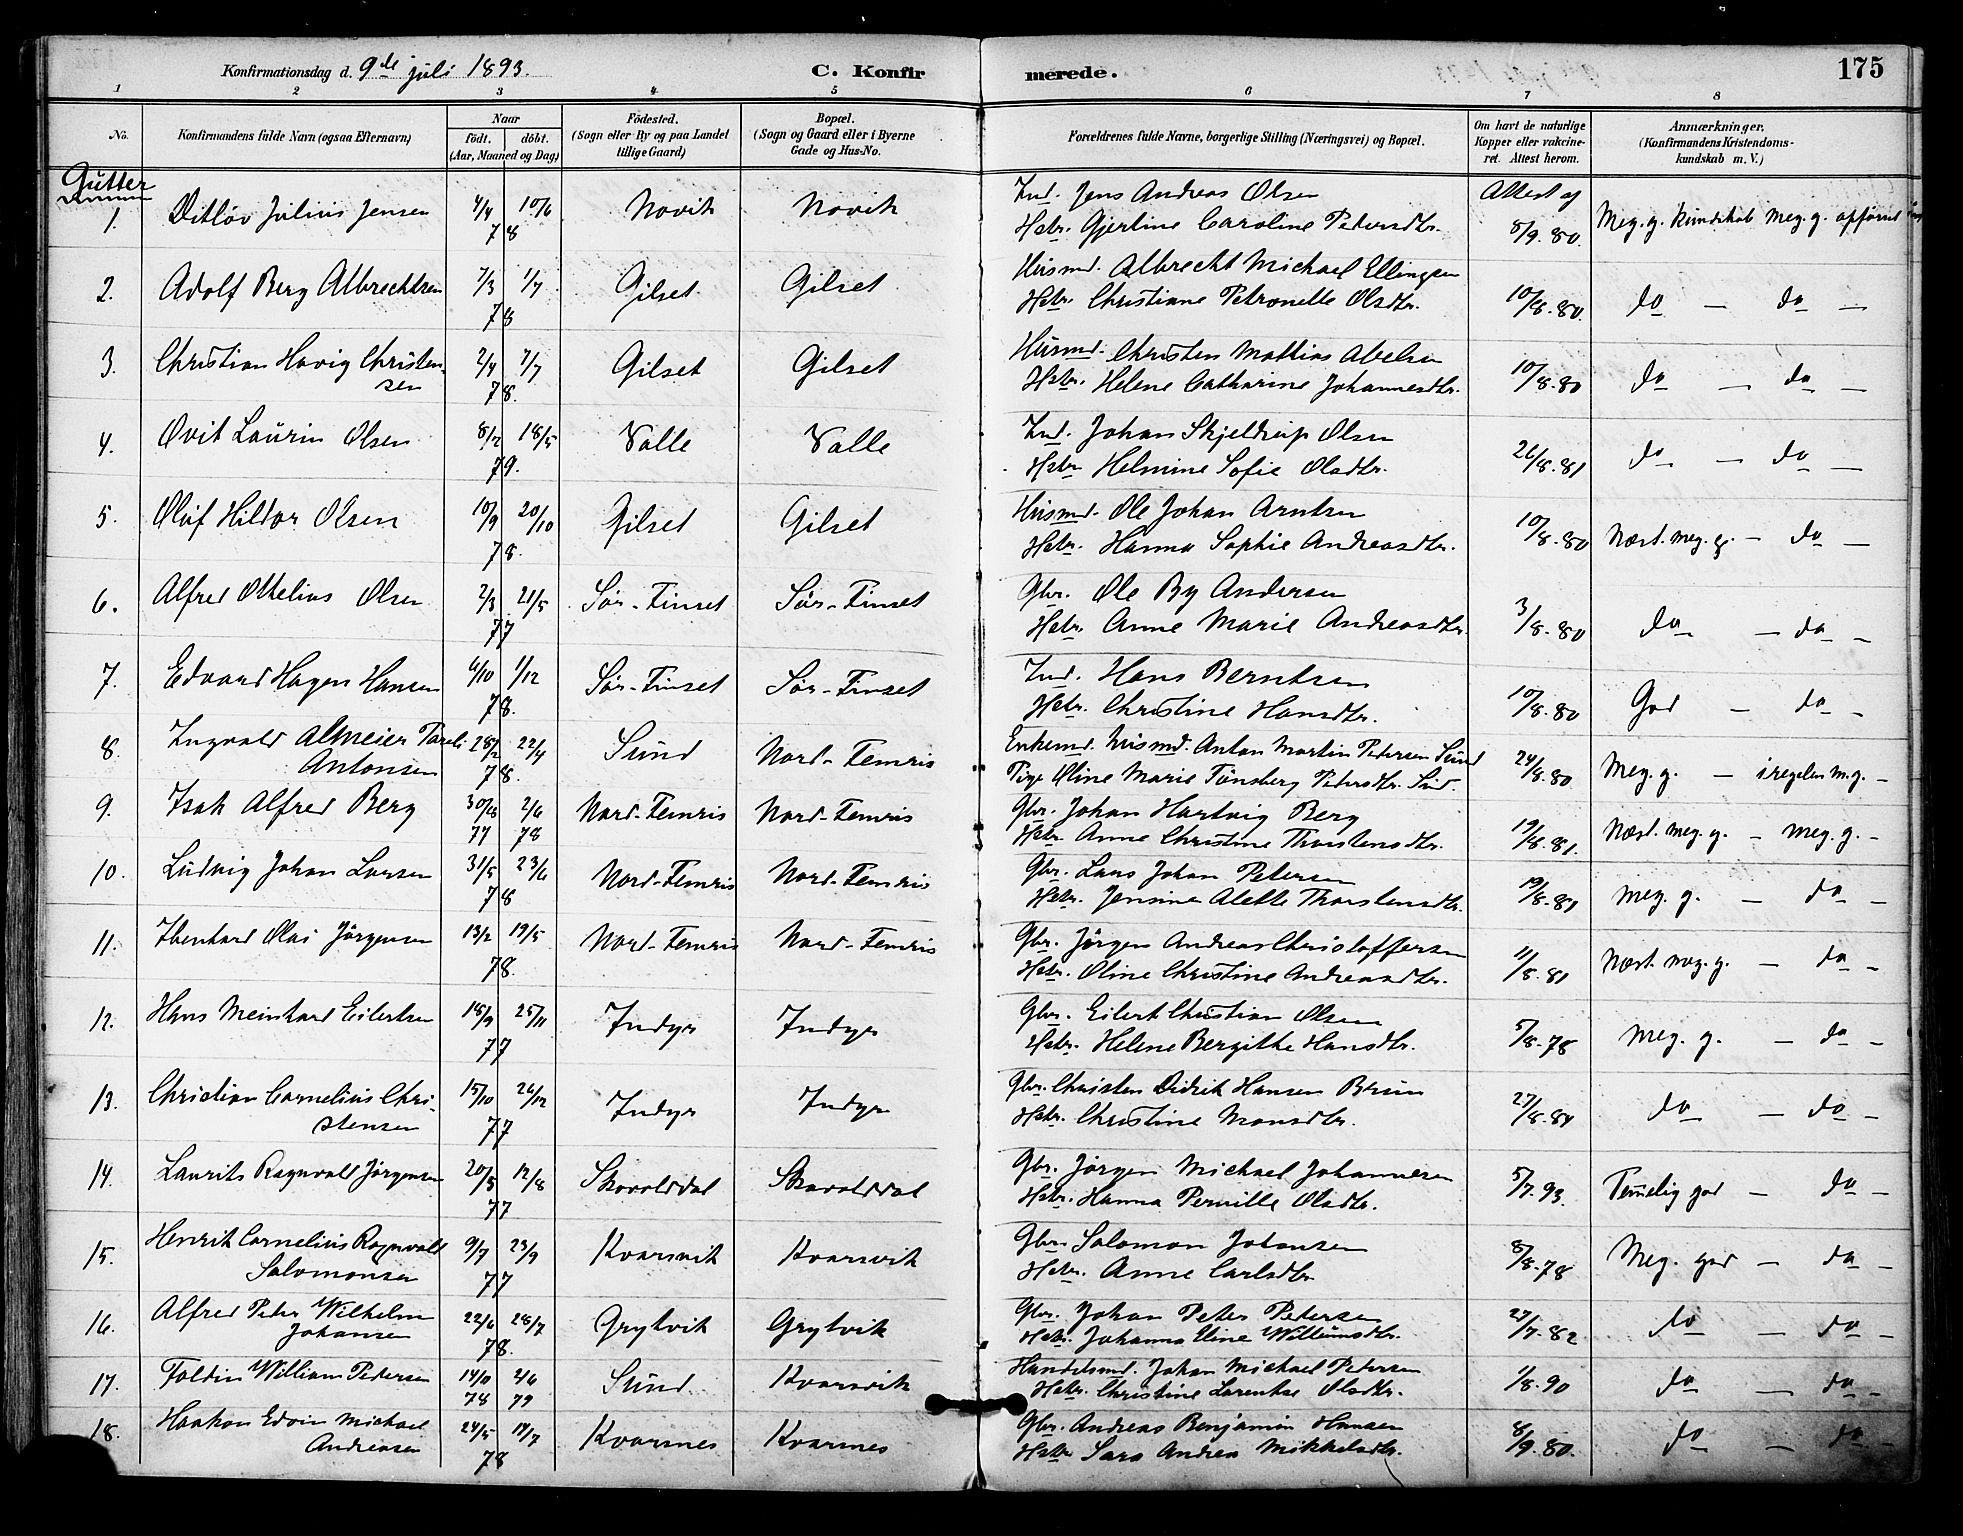 Konfirmationsdag d. 9de juli 1893. C. Konfir merede. 175
1 2 3 4 5 6 7 8
No. Konfirmandens fulde Navn (ogsaa Efternavn) Naar født. døbt. (Aar, Maaned og Dag) Fødested. (Sogn eller By og paa Landet tillige Gaard) Bopæl. (Sogn og Gaard eller i Byerne Gade og Hus-No. Forældrenes fulde Navne, borgerlige Stilling (Næringsvei) og Bopæl. Om havt de naturlige Kopper eller vakcineret. Attest herom. Anmærkninger. (Konfirmandens Kristendomskundskab m. V.)
Gutter
1. Ditløv Julius Jensen 4/4 10/6 78 Novik Novik Ind. Jens Andreas Olsen Attest af
Hstr. Gjertine Caroline Pedersdtr. 8/9.80. Meg. g. Kundskab Meg. g. opførsel
2. Adolf Berg Albrechtsen 7/3 1/7 78 Gilset Gilset Husmd. Albrecht Michael Ellingsen
Hstr. Christiane Petronelle Olsdtr. 10/8.80. do — do —
3. Christian Havig Christen- 2/4 7/7 Gilset Gilset Husmd. Christen Mathias Abelsen
sen 78. Hstr. Helene Catharine Johannesdtr. 10/8.80 do — do —
4. Ovit Laurin Olsen 8/2 18/5 79. Valle Valle Ind. Johan Skjeldrup Olsen
Hstr Helmine Sofie Olsdtr. 26/8.81 do — do —
5. Oluf Hildor Olsen 10/9 20/10 78. Gilset Gilset Husmd. Ole Johan Arntsen
Hstr. Hanna Sophie Andreasdtr. 10/8.80 Næst. meg. g. — do —
6. Alfred Othelius Olsen 2/3 21/5 77 Sør-Finset Sør-Finset Gbr. Ole By Andersen
Hstr. Anne Marie Andreasdtr. 3/8.80 do — do —
7. Edvard Hagen Hansen 4/10 1/12 78. Sør-Finset Sør-Finset Ind. Hans Berntsen
Hstr. Christine Hansdtr. 10/8.80 God — do —
8. Ingvald Almeier Pareli 28/2 22/4 Sund Nord-Femris Enkemd. Husmd. Anton Martin Petersen Sund
Antonsen 78. Pige Oline Marie Tønsberg Pedersdtr. Sund. 24/8.80 Meg. g. — iregelen m.g. —
9. Isak Alfred Berg 30/12 2/6 77 78 Nord-Femris Nord-Femris Gbr. Johan Hartvig Berg
Hstr. Anne Christine Thorstensdtr. 19/8.81. Næst. meg. g. — meg. g. —
10. Ludvig Johan Larsen 31/5 23/6 78 Nord-Femris Nord-Femris Gbr. Lars Johan Petersen
Hstr. Jensine Alette Thorstensdtr. 19/8.81 meg. g. — do —
11. Ibenhard Olai Jørgensen 13/2 19/5 78. Nord-Femris Nord-Femris Gbr. Jørgen Andreas Christoffersen
Hstr. Oline Christine Andreasdtr. 11/8.81 Næst. meg. g. — do —
12. Hans Meinhard Eilertsen 18/9 25/11 77 Indyr Indyr Gbr. Eilert Christian Olsen
Hstr. Helene Bergitte Hansdtr. 5/8.78 Meg. g. — do —
13. Christian Cornelius Chri- 15/10 26/12 Indyr Indyr Gbr. Christen Didrik Hansen Bruun
stensen 77 Hstr. Christine Monsdtr. 27/8.84 do — do —
14. Laurits Ragnvald Jørgensen 20/5 12/8 77 Skavolddal Skavolddal Gbr. Jørgen Michael Johannesen
Hstr. Hanna Pernille Olsdtr. 5/7.93. Temmelig god — do —
15. Henrik Cornelius Ragnvald 9/7 23/9 Kvarsvik Kvarsvik Gbr. Salomon Johansen
Salomonsen 77 Hstr. Anne Carlsdtr 8/8.78 Meg. god — do —
16. Alfred Peter Wilhelm 22/6 28/7 Grytvik Grytvik Gbr. Johan Peter Petersen
Johansen 78. Hstr. Johanna Eline Willumsdtr. 27/7.82 do — do —
17. Foldin William Pedersen 78 79 Sund Kvarsvik Handelsmd. Johan Michael Petersen
Hstr. Christine Larentse Olsdtr. 1/8.90 do — do —
18. Haakon Edvin Michael 24/5 14/7 Kvarsnes Kvarsnes Gbr. Andreas Benjamin Hansen
Andreasen 78 Hstr Sara Andrea Mikkelsdtr. 8/9.80. do — do —